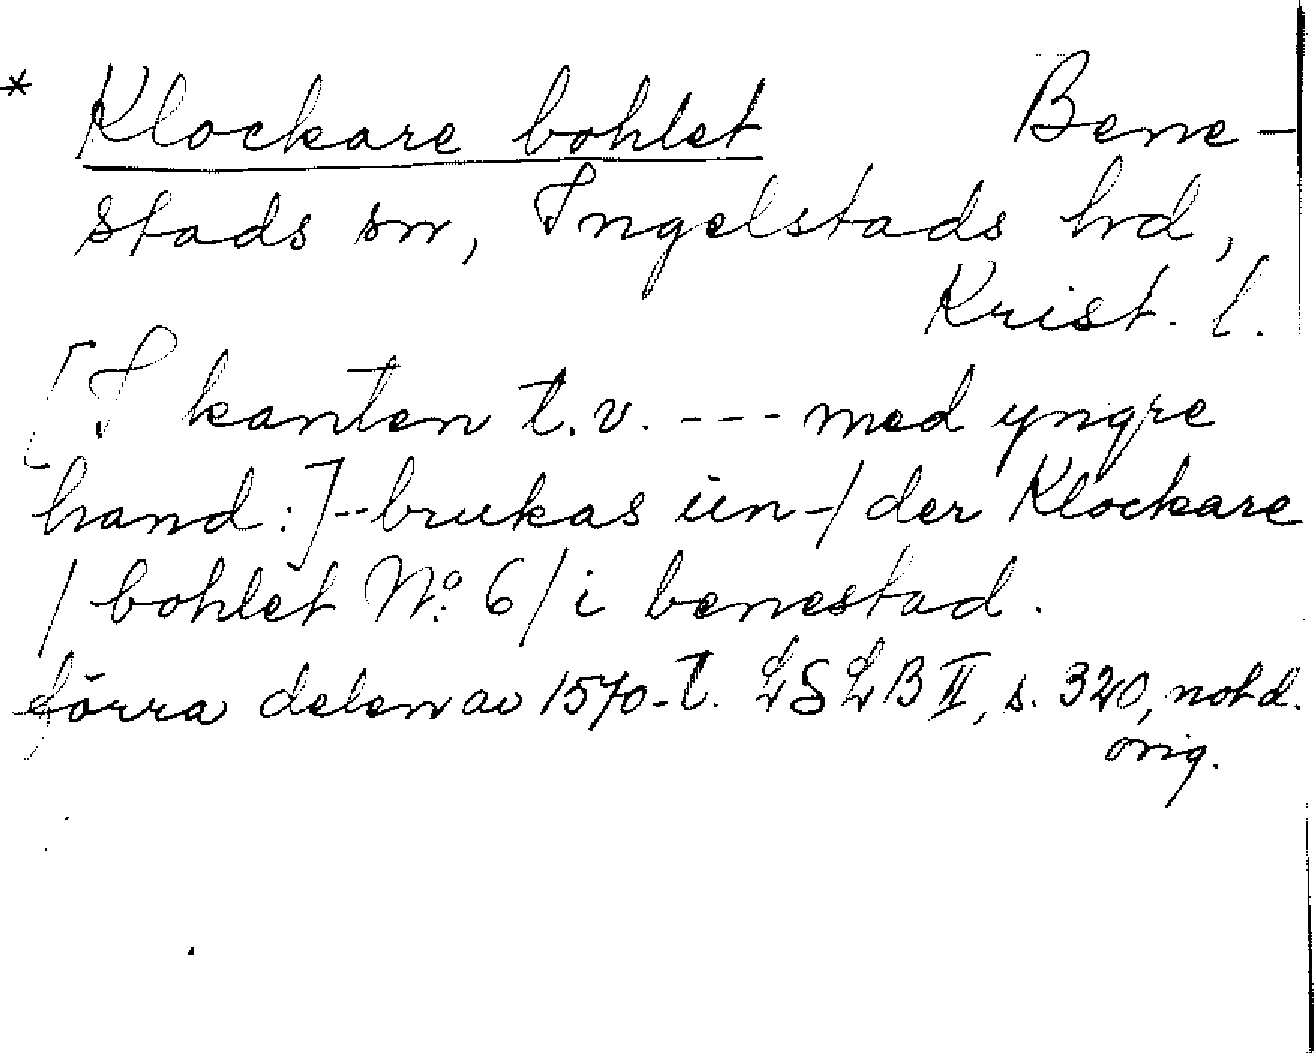 * Klockare bohlet Bene-
stads sn, Ingelstads hd,
Krist. l.
[I kanten t.v. --- med yngre
hand:] -- brukas ùn-/der Klockare
/bohlet No: 6/i benestad.
förra delen av 1570-t. LSLB II, s. 320, not d.
orig.